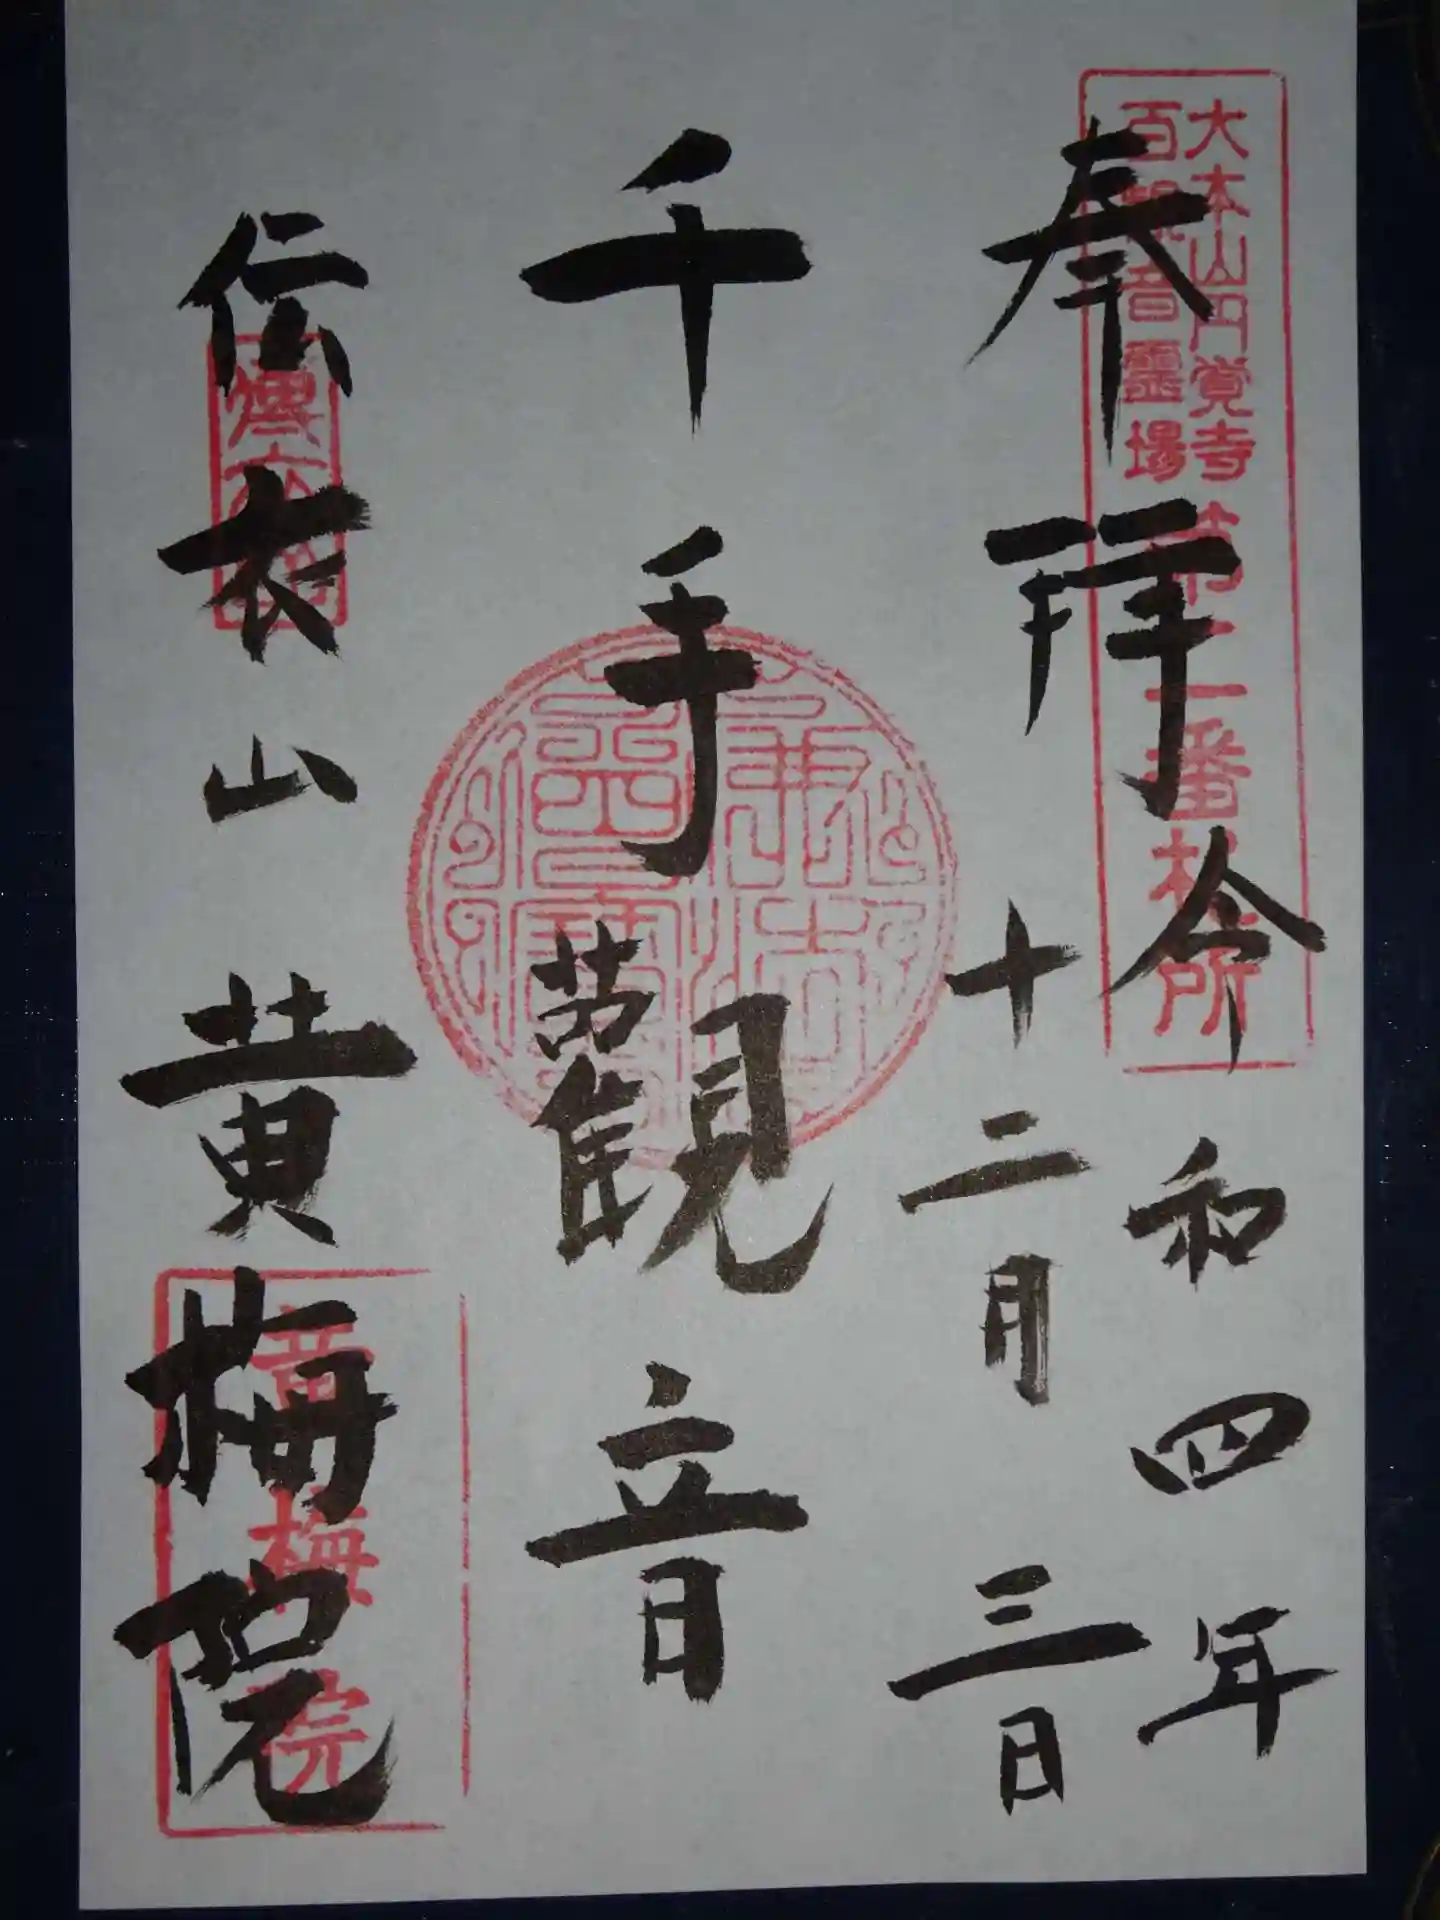 奉拝
令和四年
十二月三日
千手觀音
伝衣山
黄梅院
大本山円覚寺
百観音霊場
番札所
黄梅院